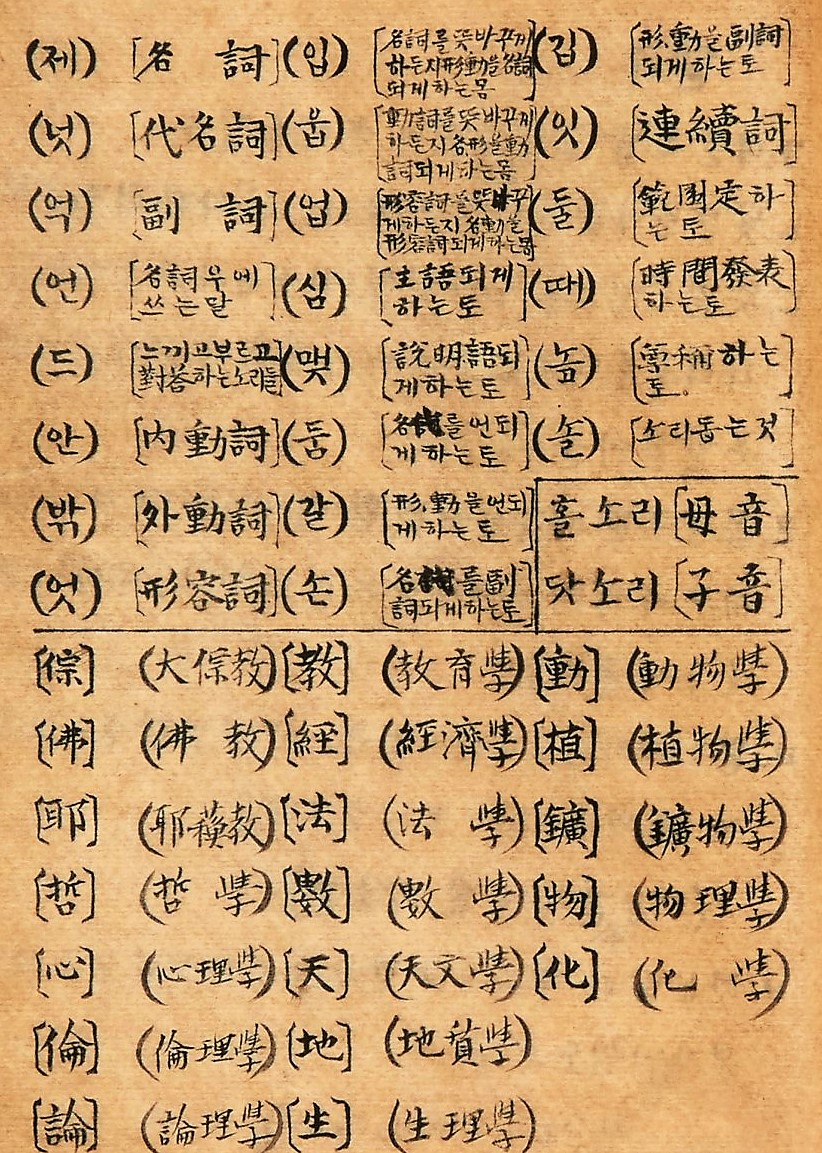 (제) [名詞] (입) [名詞를 뜻바꾸게
하든지 形動을 名詞
되게하는몸] (깁) [形,動을 副詞
되게하는토]
(넛) [代名詞] (웁) [動詞를 뜻바꾸게
하든지 名形을 動
詞되게하는몸] (잇) [連續詞]
(억) [副詞] (업) [形容詞를 뜻바꾸
게하든지 名動을
形容詞되게하는몸] (둘) [範圍定하
는토]
(언) [名詞우에
쓰는말] (심) [主語되게
하는토] (때) [時間發表
하는토]
(드) [느끼고부르고
對答하는소리들] (맺) [說明語되
게하는토] (높) [尊稱하는
토。]
(안) [內動詞] (둠) [名 를언되
게하는토] (솔) [소리돕는것]
(밖) [外動詞] (갈) [形,動을언되
게하는토] 홀소리 [母音]
(엇) [形容詞] (손) [名 를副
詞되게하는토] 닷소리 [子音]
[倧] (大倧敎) [敎] (敎育學) [動] (動物學)
[佛] (佛敎) [經] (經濟學) [植] (植物學)
[耶] (耶蘇敎) [法] (法學) [鑛] (鑛物學)
[哲] (哲學) [數] (數學) [物] (物理學)
[心] (心理學) [天] (天文學) [化] (化學)
[倫] (倫理學) [地] (地質學)
[論] (論理學) [生] (生理學)